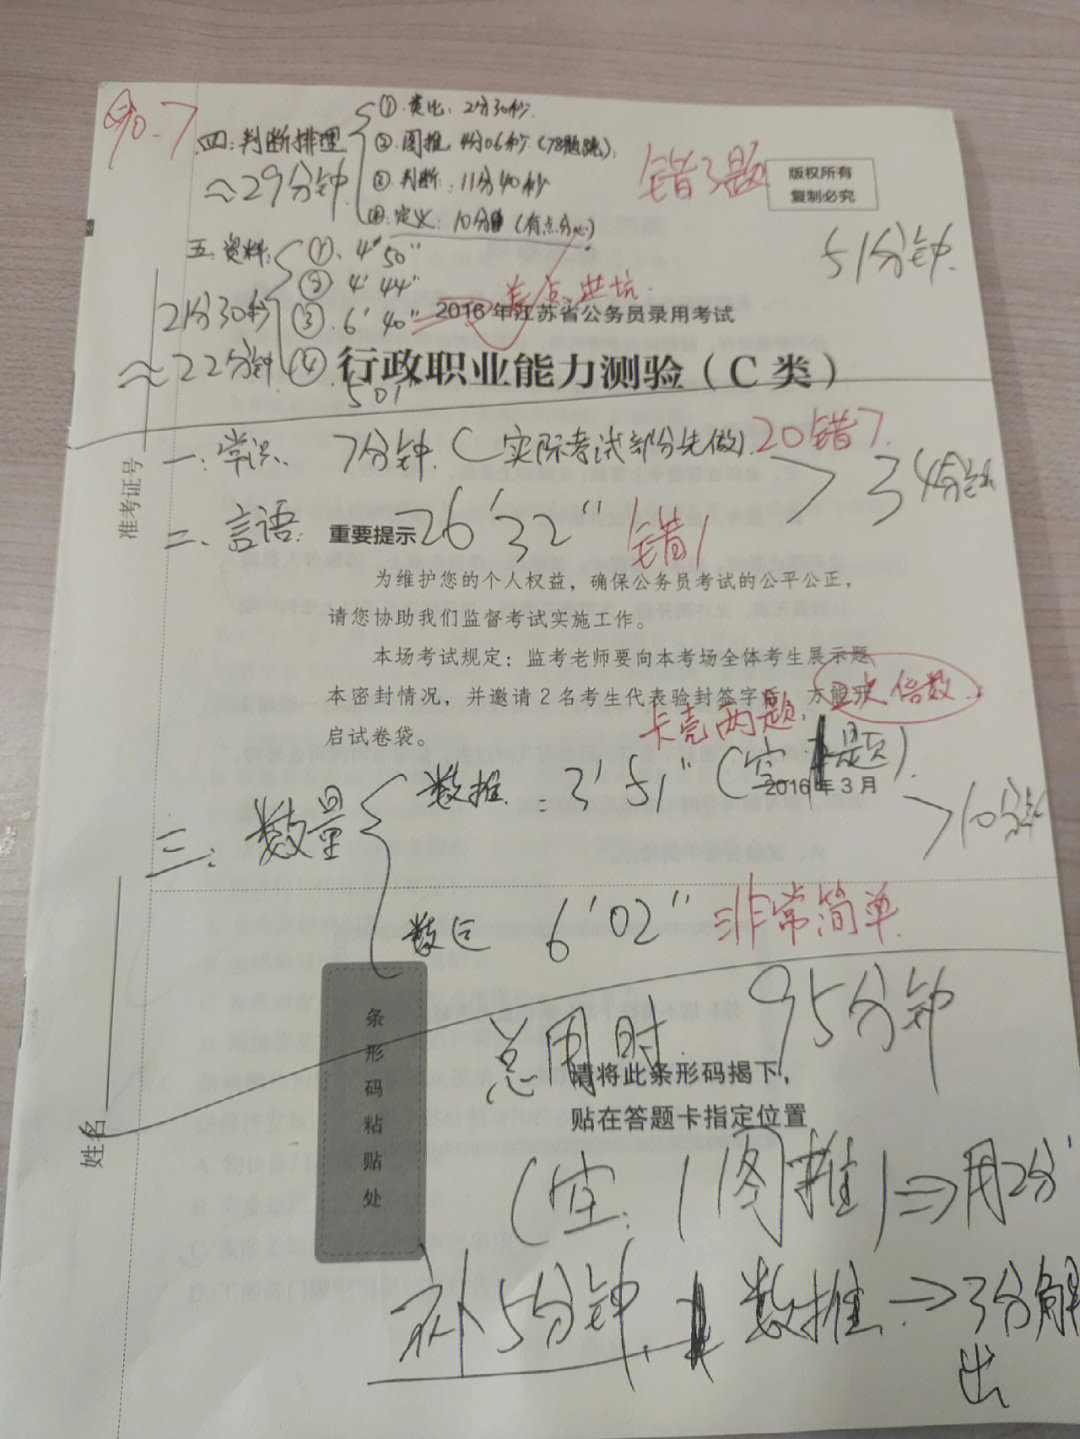 90.7
四:判断排理
≈29分钟
①.类比:2分30秒.
②.图推 4分06秒(78题跳).
③.判断:11分40秒
④.定义:10分 (有点分心)
错3题
版权所有
复制必究
51分钟.
五.资料:
21分30秒
≈22分钟
①. 4'50"
② 4'44"
③ 6'40"
④ 501"
2016年江苏省公务员录用考试
行政职业能力测验(C类)
准考证号
一.常识. 7分钟.(实际考试部分先做). 20错7.
>34分钟
二、言語: 26'32" 错1
重要提示
为维护您的个人权益,确保公务员考试的公平公正,
请您协助我们监督考试实施工作。
本场考试规定:监考老师要向本考场全体考生展示题
本密封情况,并邀请2名考生代表验封签字后,方能开
启试卷袋。
卡壳两题. 倍数.
三:数量
数推:3'51"(空1题).
2016年3月
>10分钟
数运 6'02" 非常简单.
总用时. 95分钟
条形码粘贴处
请将此条形码揭下,
贴在答题卡指定位置
姓名
(空:1图推)⇒用2分
补5分钟. 数推.→3分解
出